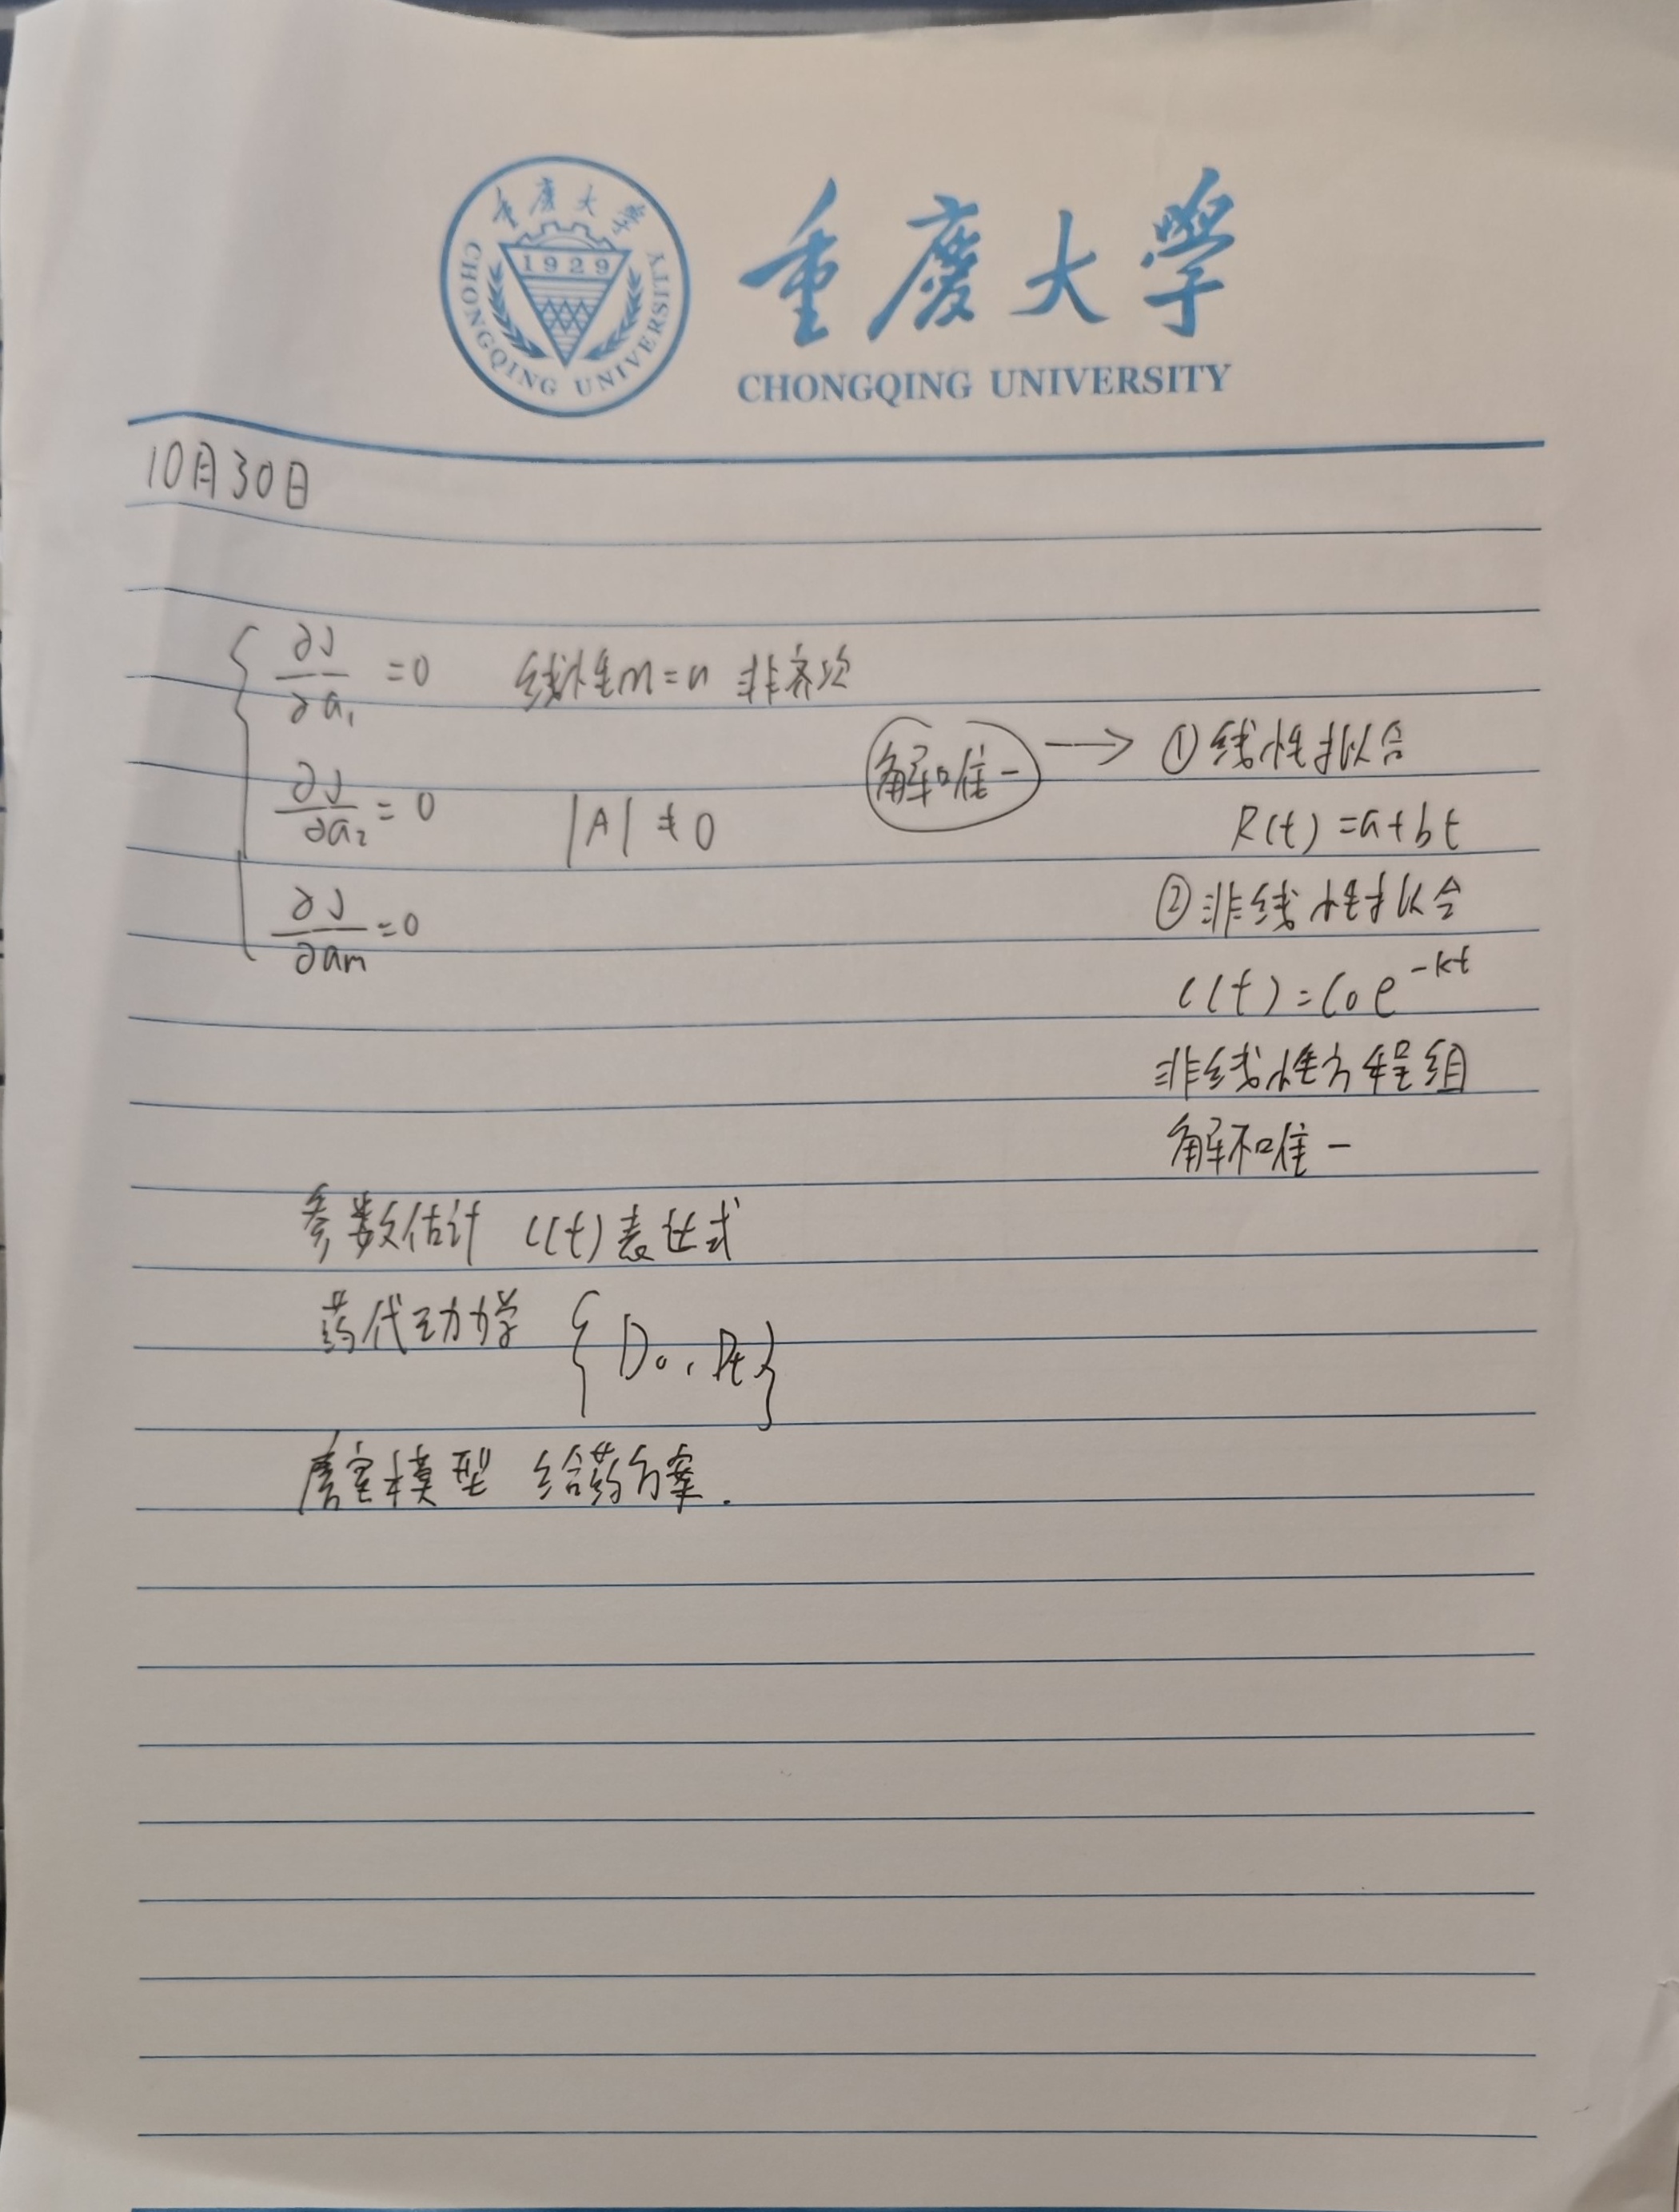 重庆大学
1929
CHONGQING UNIVERSITY
重慶大學
CHONGQING UNIVERSITY
10月30日
∂J/∂a₁ = 0 线性m=n 非齐次
∂J/∂a₂ = 0 |A| ≠ 0
∂J/∂am = 0
解唯一 → ①线性拟合
R(t) = a+bt
②非线性拟合
C(t) = C₀e^-kt
非线性方程组
解不唯一
参数估计 C(t)表达式
药代动力学 {D₀, Dt}
房室模型 给药方案.